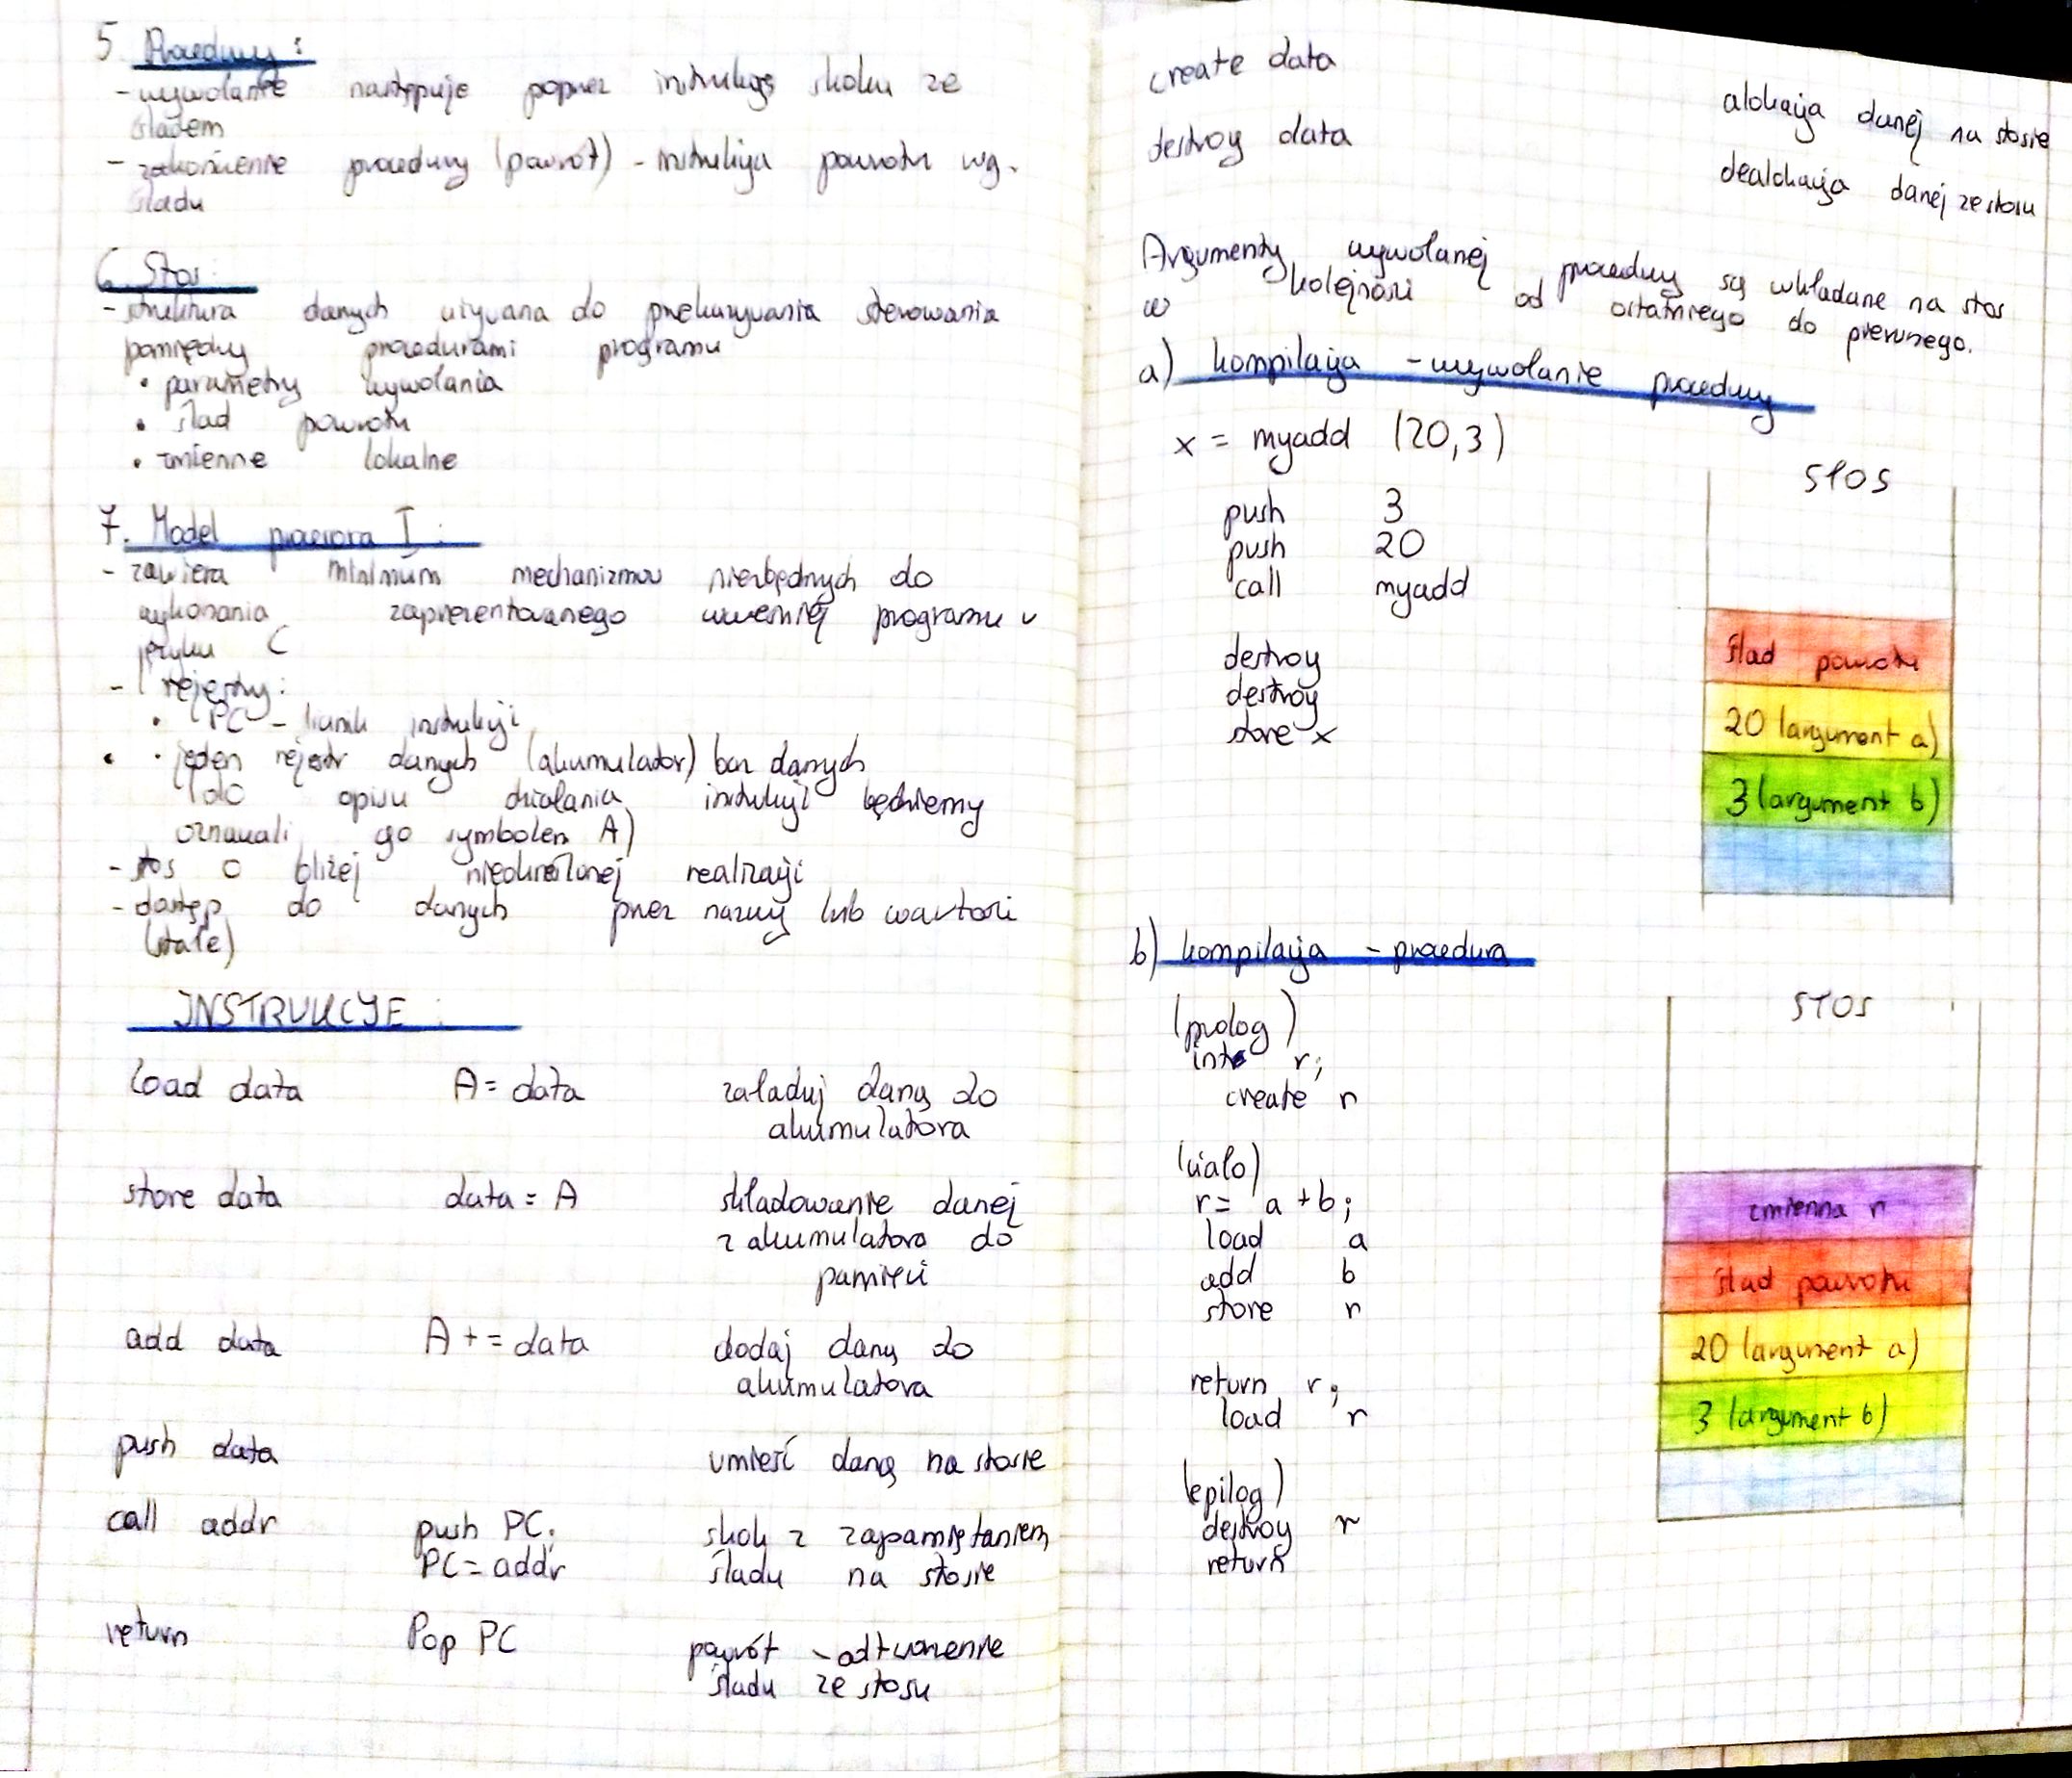 5. Procedury:
- wywołanie następuje poprzez instrukcję skoku ze
śladem
- zakończenie procedury (powrót) - instrukcja powrotu wg.
śladu
6. Stos:
- struktura danych używana do przekazywania sterowania
pomiędzy procedurami programu
• parametry wywołania
• ślad powrotu
• zmienne lokalne
7. Model procesora I:
- zawiera minimum mechanizmów niezbędnych do
wykonania zaprezentowanego wcześniej programu w
języku C
- rejestry:
• PC - licznik instrukcji
• jeden rejestr danych (akumulator) bez danych
(do opisu działania instrukcji będziemy
oznaczali go symbolem A)
- stos o bliżej nieokreślonej realizacji
- dostęp do danych przez nazwy lub wartości
(stałe)
INSTRUKCJE:
load data A = data załaduj daną do
akumulatora
store data data = A składowanie danej
z akumulatora do
pamięci
add data A += data dodaj daną do
akumulatora
push data umieść daną na stosie
call addr push PC; skok z zapamiętaniem
PC = addr śladu na stosie
return Pop PC powrót - odtworzenie
śladu ze stosu
create data alokacja danej na stosie
destroy data dealokacja danej ze stosu
Argumenty wywołanej procedury są wkładane na stos
w kolejności od ostatniego do pierwszego.
a) kompilacja - wywołanie procedury
x = myadd (20,3)
push 3
push 20
call myadd
destroy
destroy
store x
STOS
ślad powrotu
20 (argument a)
3 (argument b)
b) kompilacja - procedura
(prolog)
int r;
create r
(ciało)
r = a + b;
load a
add b
store r
return r;
load r
(epilog)
destroy r
return
STOS
zmienna r
ślad powrotu
20 (argument a)
3 (argument b)